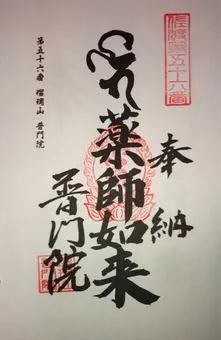 佐渡第五十六番
奉納
薬師如来
普門院
第五十六番 瑠璃山 普門院